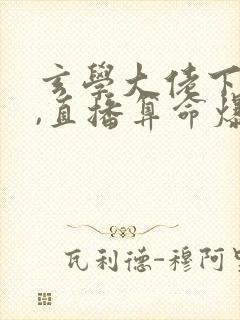 玄學大佬下
,直播算命爆
瓦利德-穆阿